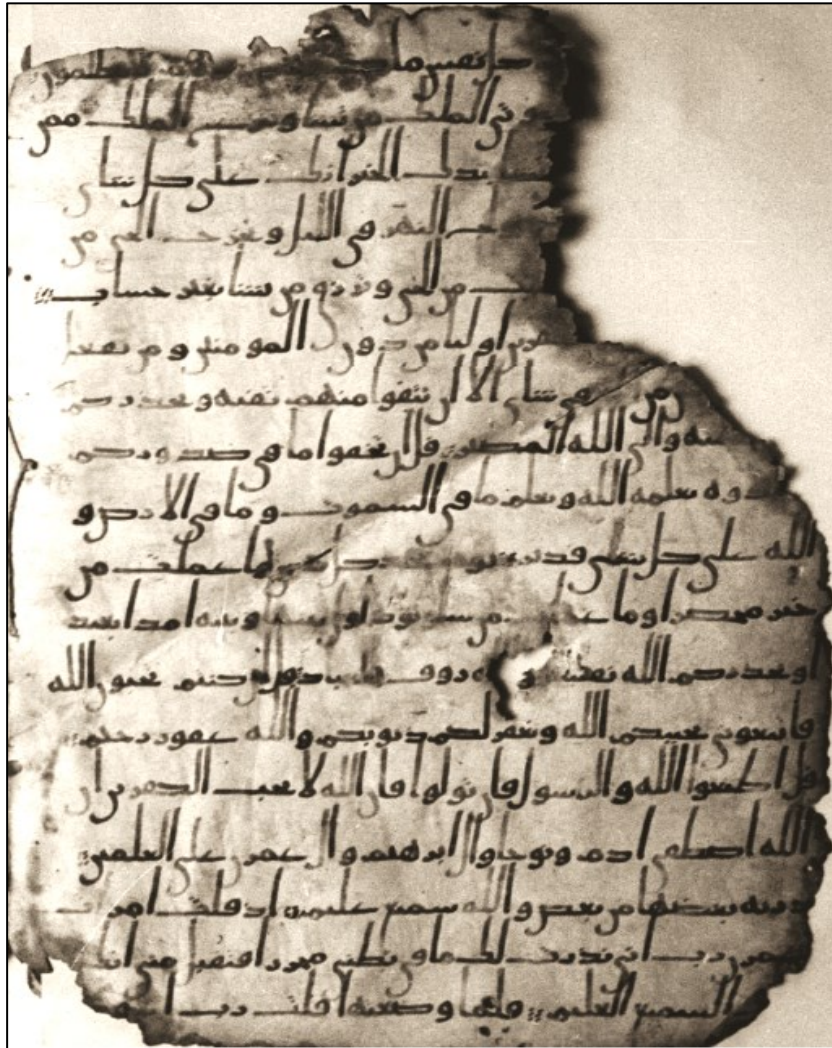 كل نفس ما يظلمون
توتي الملك من تشا وتنزع الملك ممن
تشا بيدك الخير انك على كل شاي
النهر في اليل وتخرج الحي من
من الحي وترزق من تشا بغير حساب
اوليا من دون المومنين ومن يفعل
من في شاي الا ان تتقوا منهم تقيه ويحذركم
نفسه والى الله المصير قل ان تخفوا ما في صدوركم
تبدوه يعلمه الله ويعلم ما في السموت وما في الارض و
الله على كل شاي قدير يوم تجد كل نفس ما عملت من
خير محضرا وما عملت من سو تود لو ان بينها وبينه امدا بعيد
ا ويحذركم الله نفسه و روف بالعباد قل ان كنتم تحبون الله
فاتبعوني يحببكم الله ويغفر لكم ذنوبكم والله غفور رحيم
قل اطيعوا الله والرسول فان تولوا فان الله لا يحب الكفرين ان
الله اصطفى ادم ونوحا وال ابرهيم وال عمرن على العلمين
ذريه بعضها من بعض والله سميع عليم اذ قلت امرات
عمرن رب اني نذرت لك ما في بطني محررا فتقبل مني انك
السميع العليم فلما وضعتها قلت رب اني